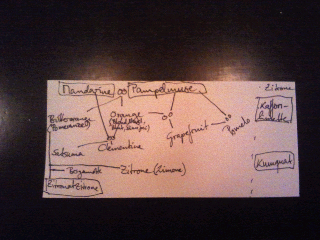 Mandarine ∞ Pampelmuse
Zitrone
Bitterorange
(Pomeranze)
Orange
Kaffern-
limette
Grapefruit
Pomelo
Satsuma
Clementine
Bergamotte
Zitrone (Limone)
Kumquat
Zitronatzitrone